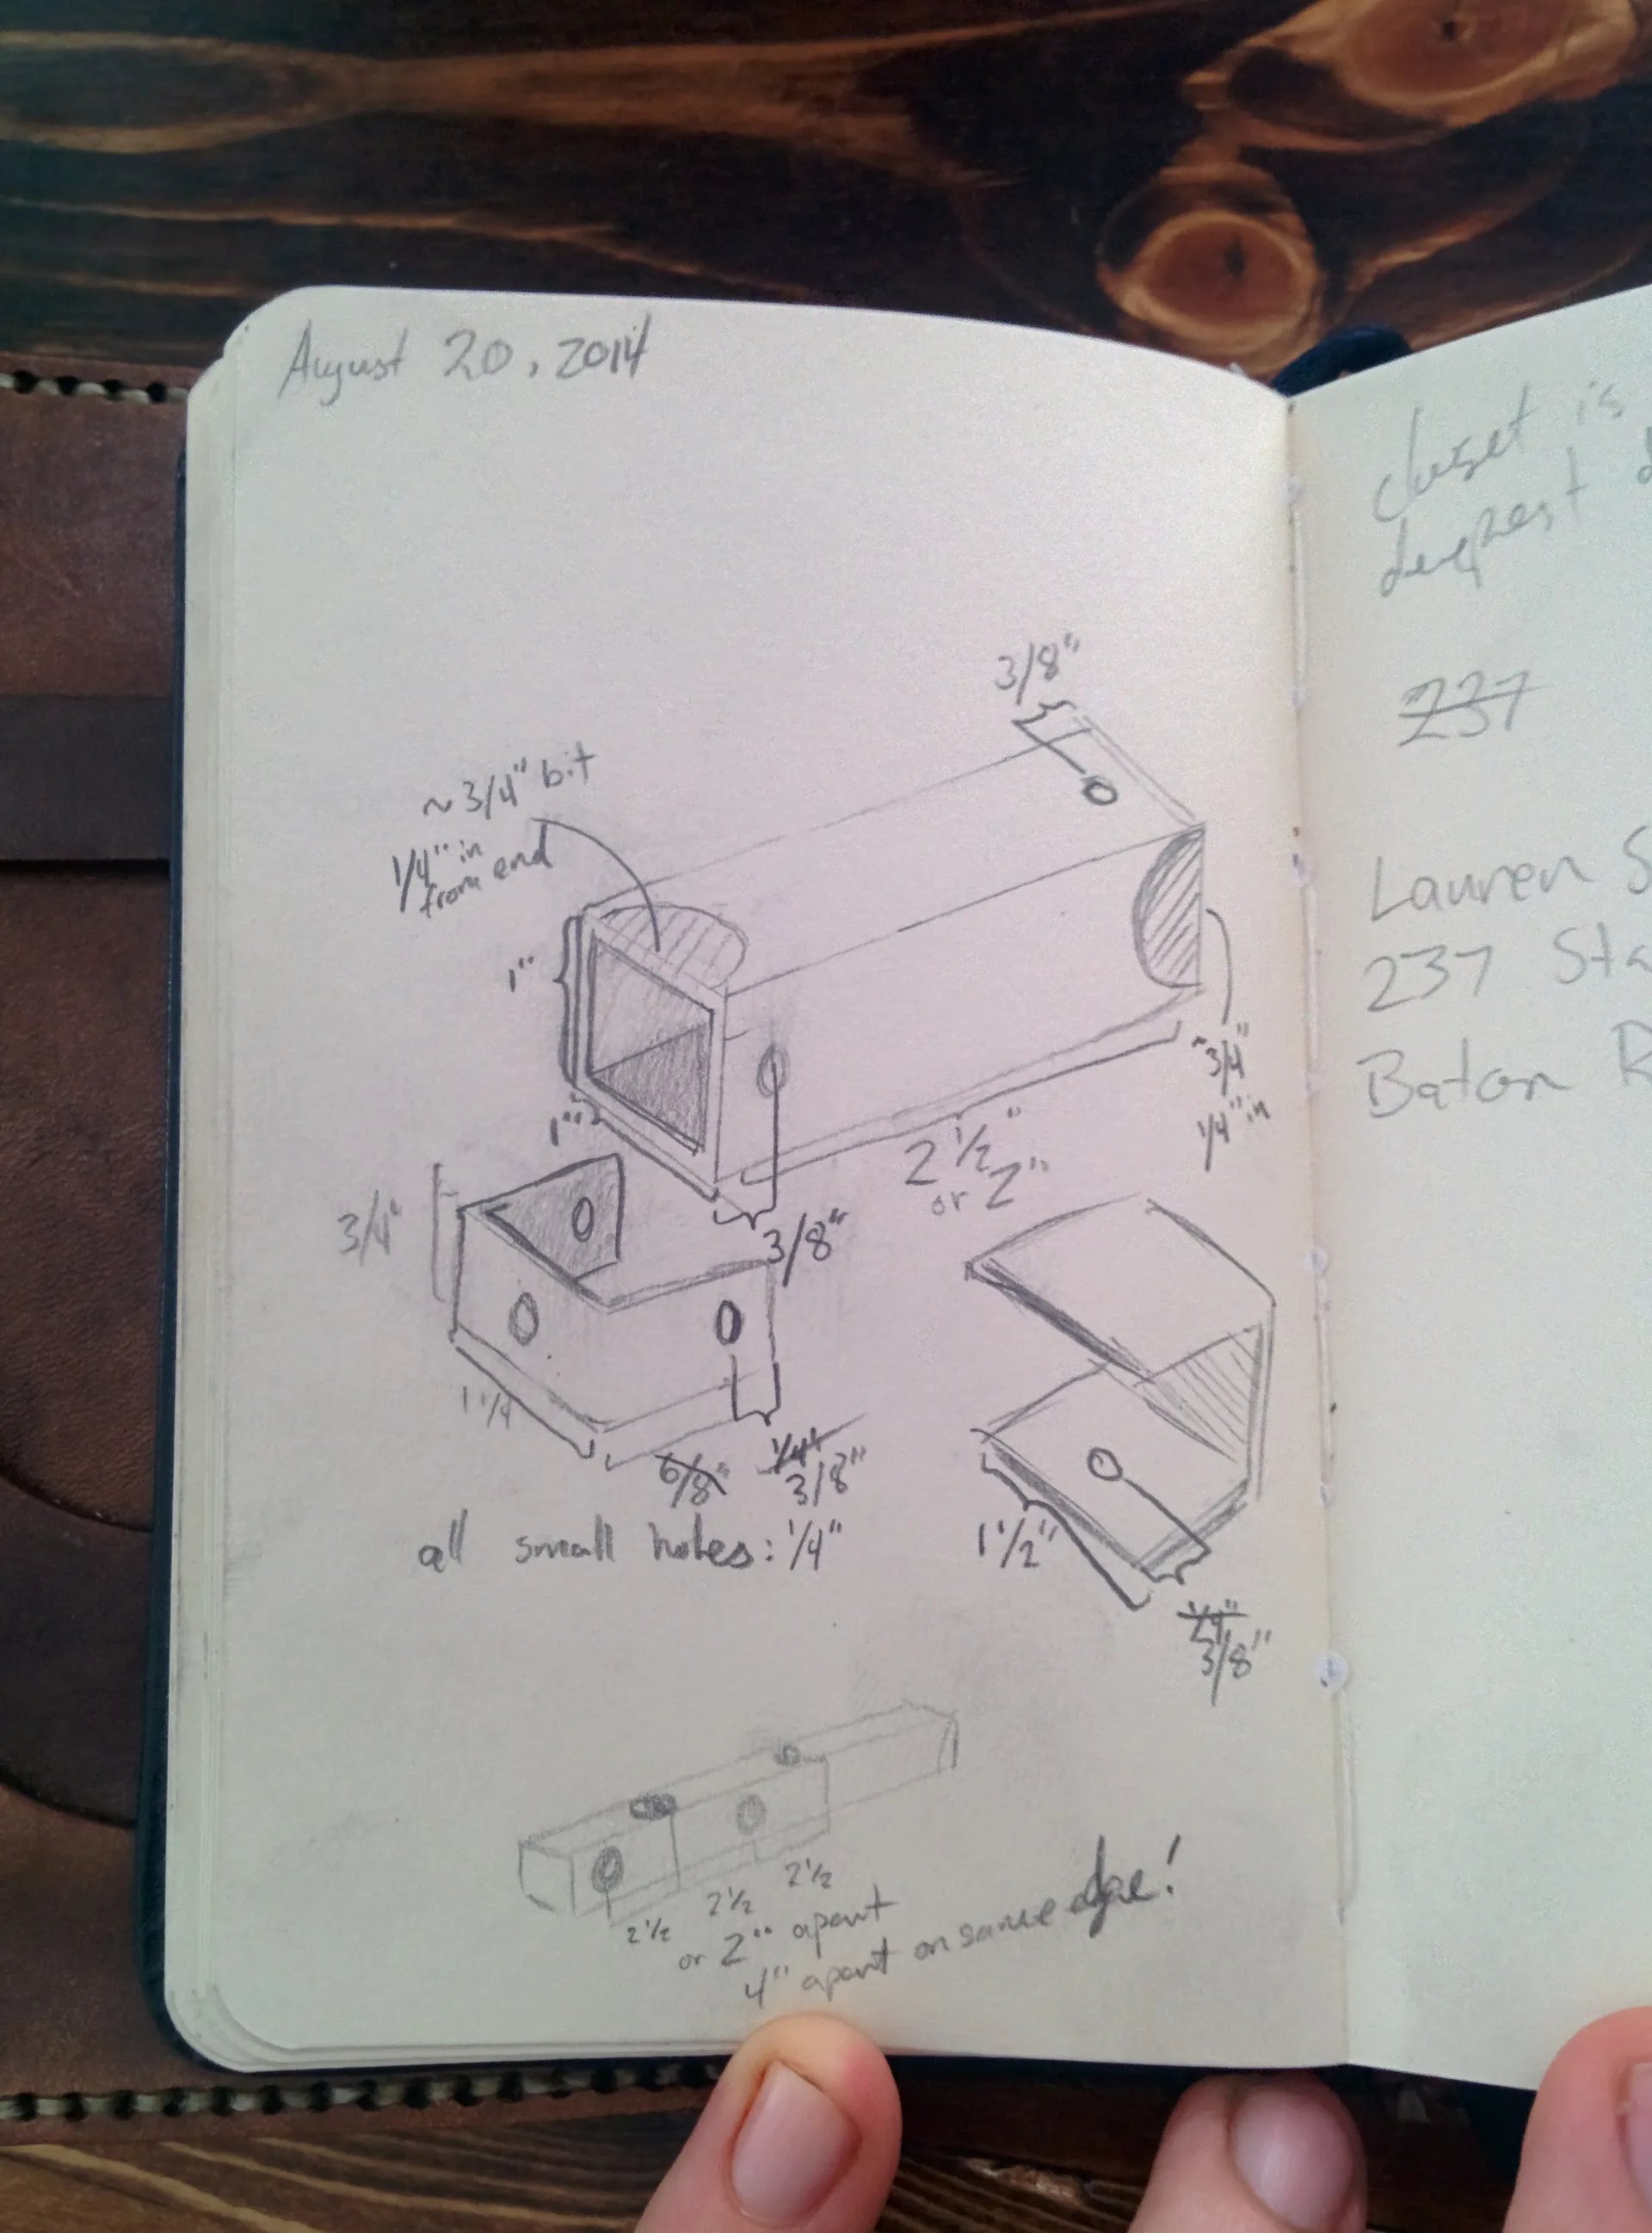 August 20, 2014
3/8"
~ 3/4" bit
1/4" in
from end
1"
1"
~3/4"
1/4" in
2 1/2"
or 2"
3/8"
3/4"
1 1/4
6/8"
1/4"
3/8"
all small holes: 1/4"
1 1/2"
1/4"
3/8"
2 1/2
2 1/2
2 1/2
or 2" apart
4" apart on same edge!
closet is
deepest
237
Lauren S
237 Sta
Baton R